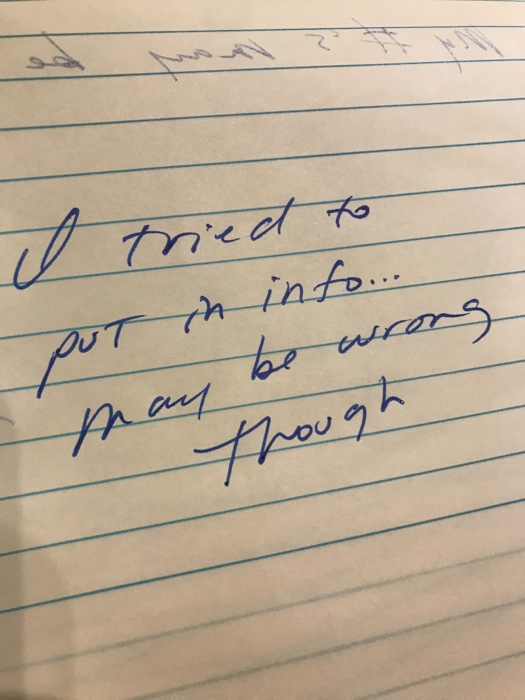 My #'s may be
I tried to
put in info...
may be wrong
though